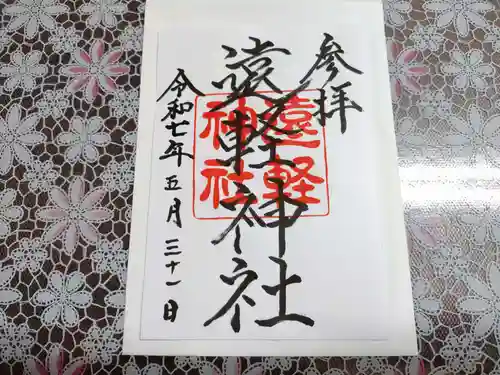 参拝
遠軽神社
遠軽
神社
令和七年五月三十一日